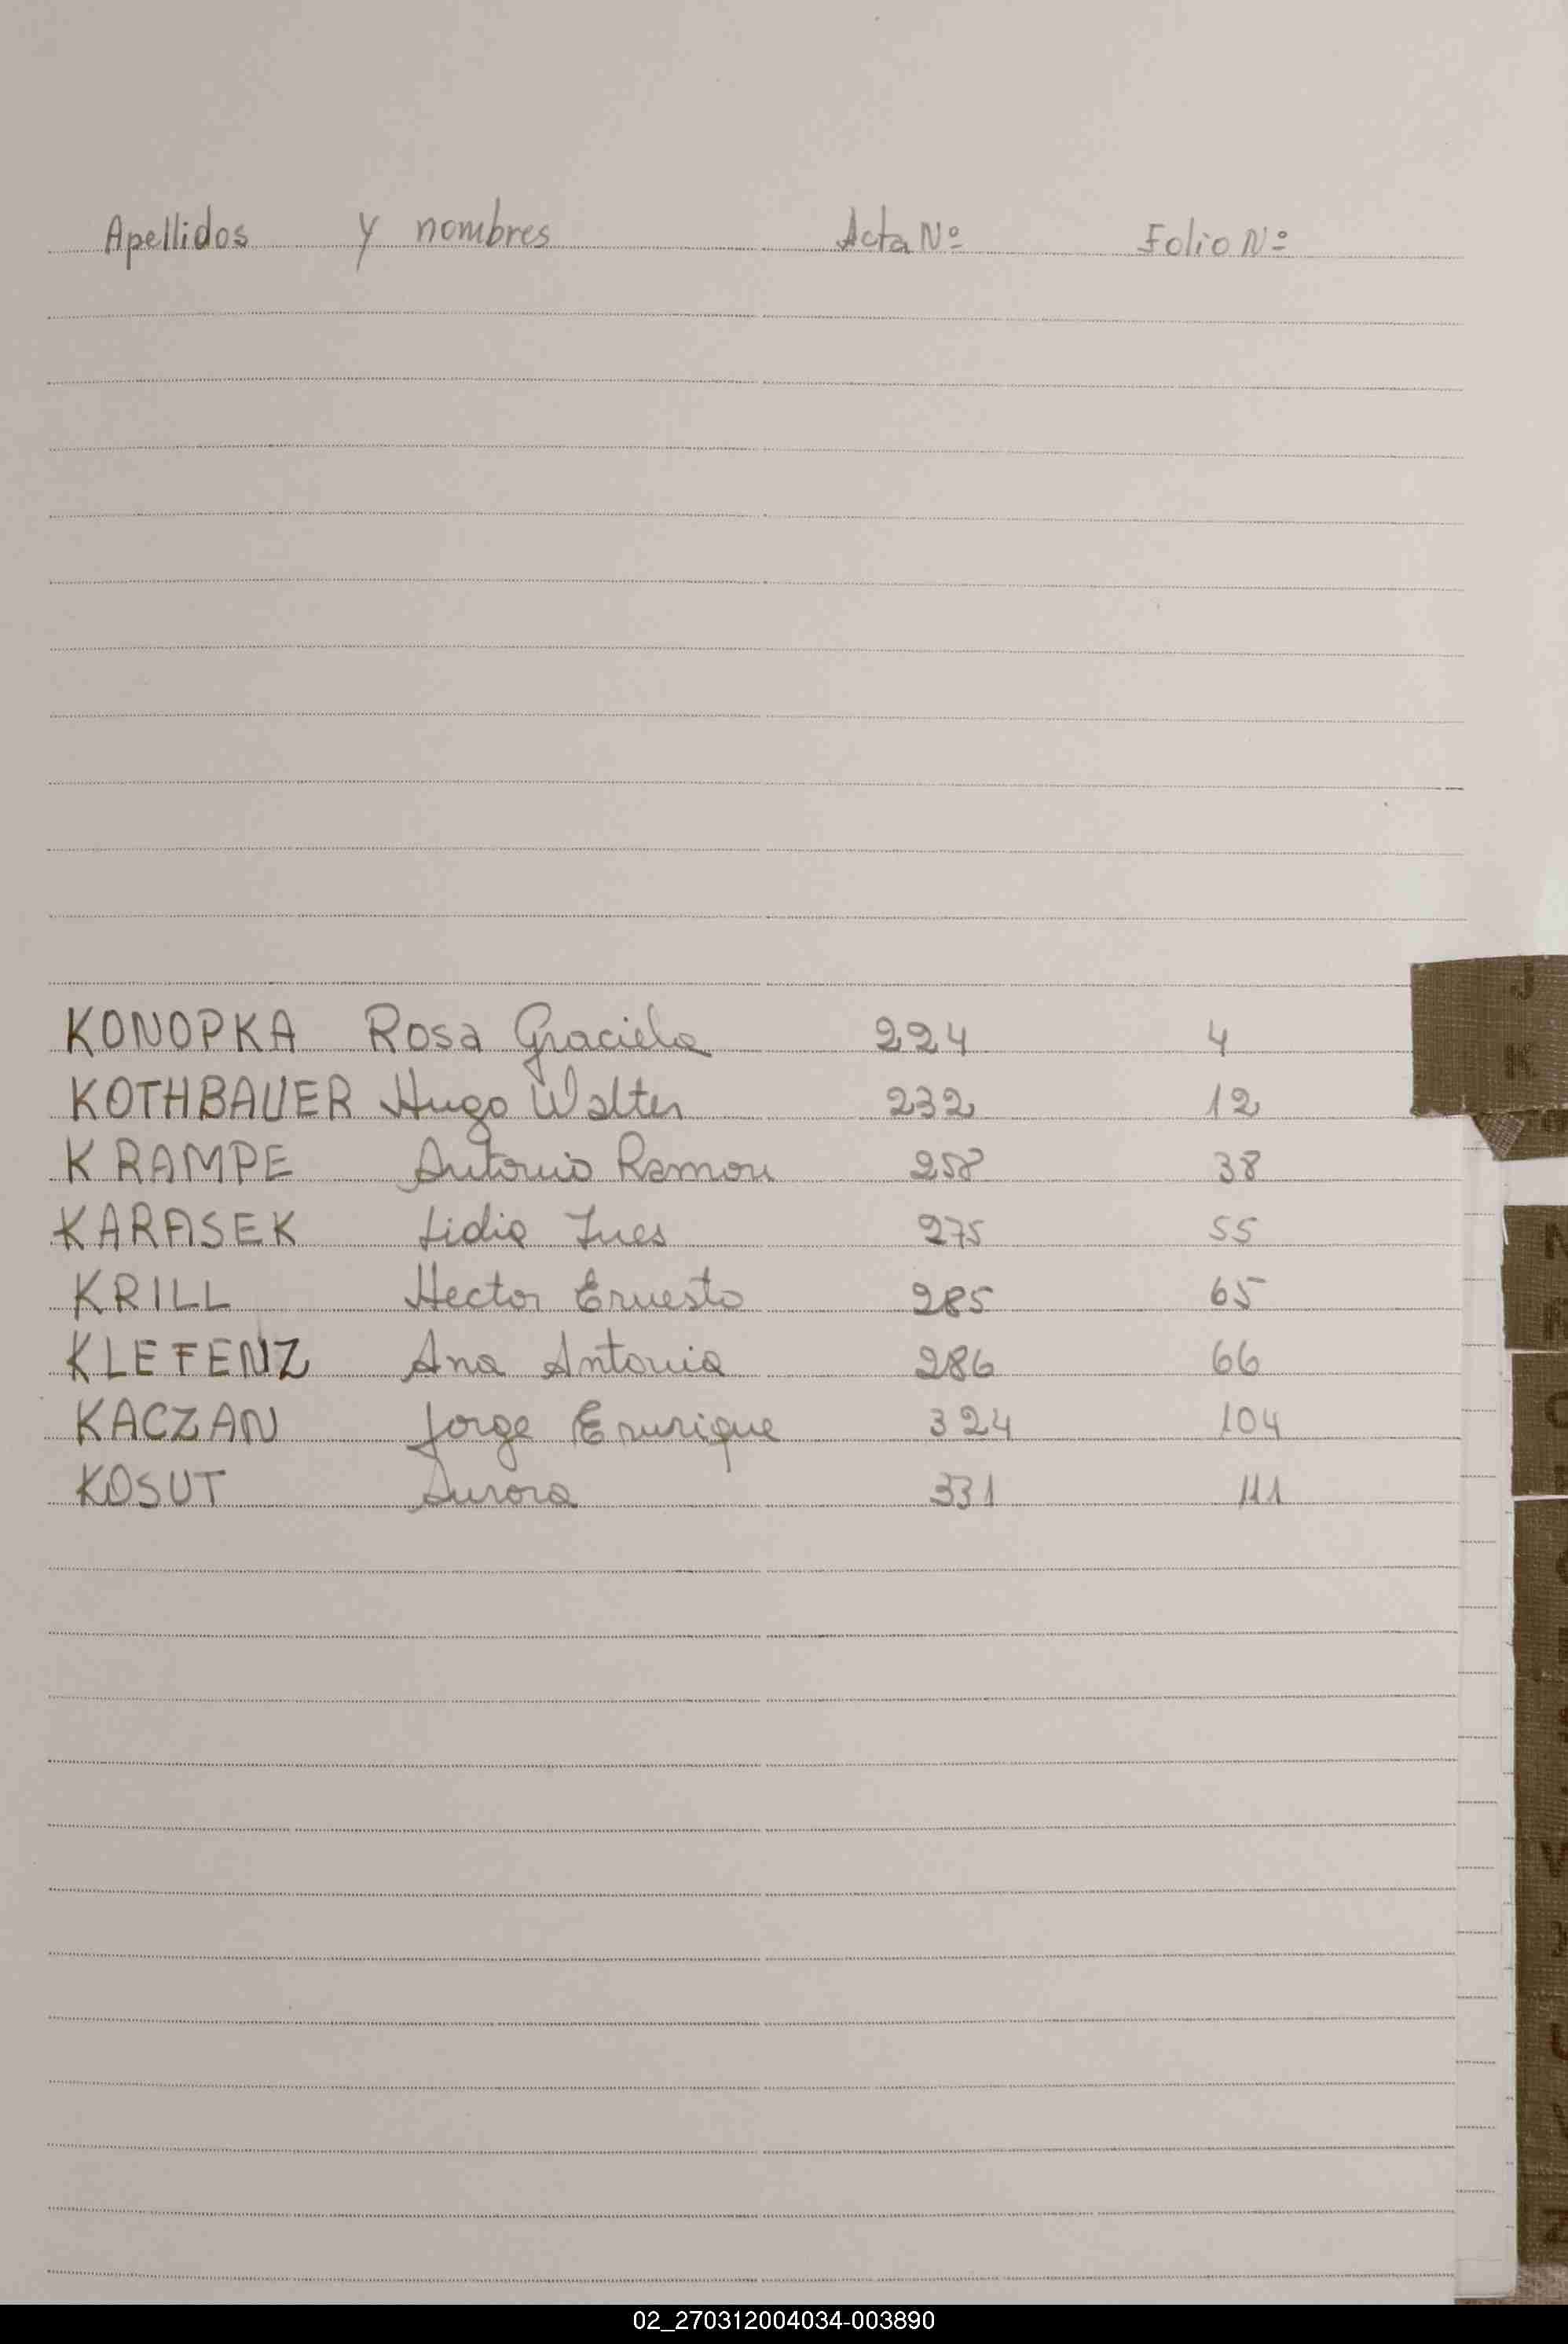 Apellidos y nombres Acta Nº Folio Nº
J
K
KONOPKA Rosa Graciela 224 4
KOTHBAUER Hugo Walter 232 12
KRAMPE Antonio Ramon 258 38
KARASEK Lidia Ines 275 55
KRILL Hector Ernesto 285 65
KLEFENZ Ana Antonia 286 66
KACZAN Jorge Enrique 324 104
KOSUT Aurora 331 111
02_270312004034-003890